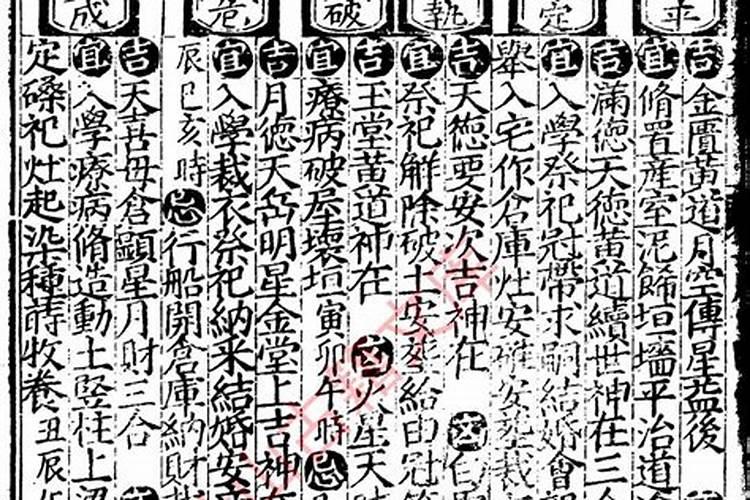 平
吉金匱黃道月空傳星益後
宜脩置產室泥飾垣墻平治道
吉滿德天德黃道續世神在三
定
宜入學祭祀冠帶求嗣結婚會
舉入宅作倉庫灶安碓安
執
吉天德要安次吉神在 凶
宜祭祀解除破土安葬給由冠
破
吉玉堂黃道神在 凶火星天
宜療病破屋壞垣寅卯午時忌
危
吉月德天岳明星金堂上吉神
宜入學裁衣祭祀納采結婚安
辰巳亥時忌行船開倉庫納財
成
吉天喜母倉顯星月財三合
宜入學療病脩造動土竪柱上梁
定磉祀灶起染種蒔牧養丑辰